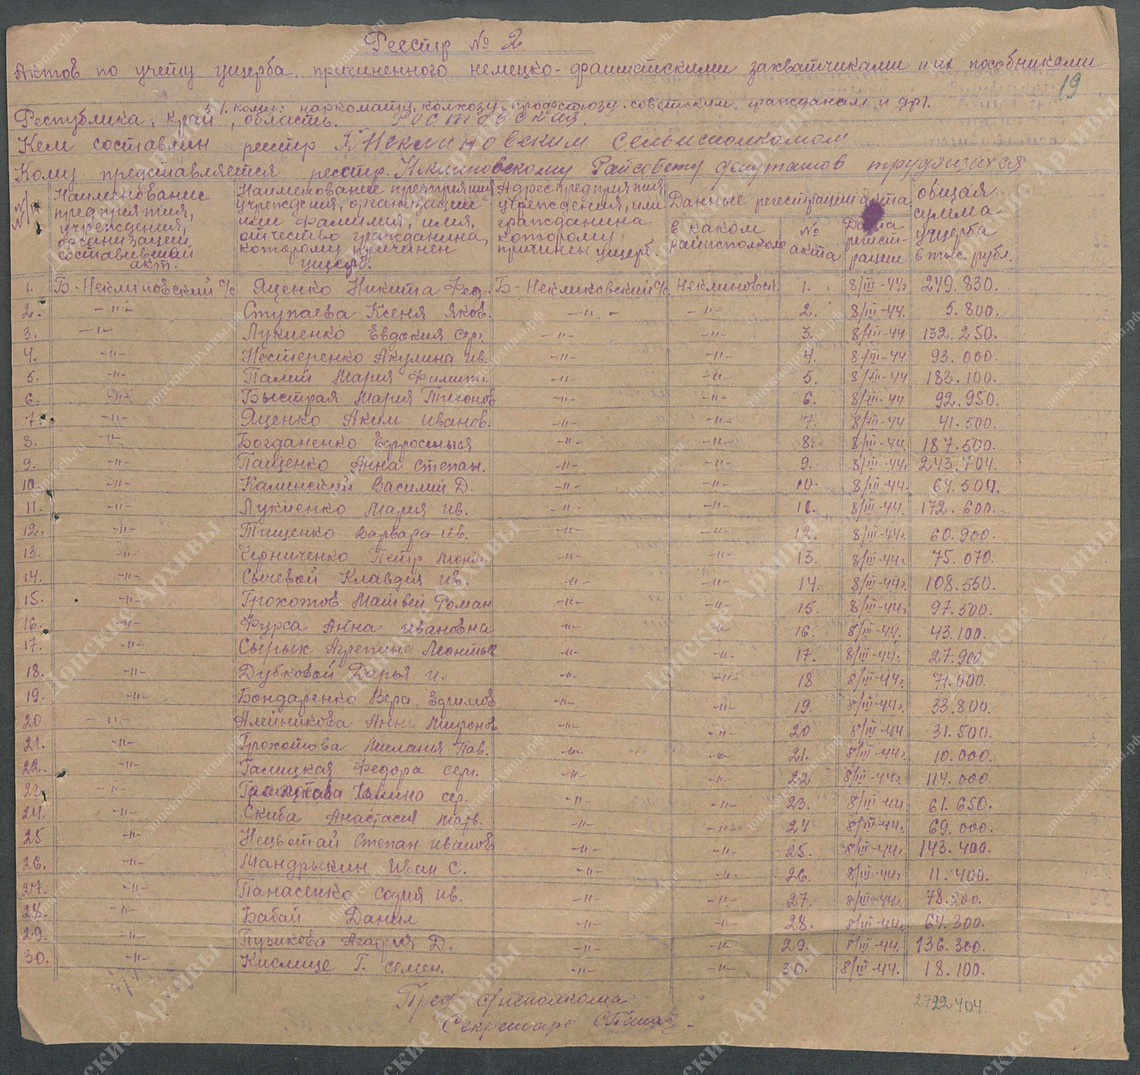 Реестр № 2
Актов по учету ущерба, причиненного немецко-фашистскими захватчиками и их пособниками
19
кому: наркомату, колхозу, профсоюзу, советским гражданам и др.
Республика, край, область. Ростовская
Кем составлен реестр Неклиновским сельисполкомом
Кому представляется реестр. Неклиновскому Райсовету депутатов трудящихся
№ Наименование предприятия, учреждения, организации составивший акт.
Наименование предприятия учреждения, организации или фамилия, имя, отчество гражданина, которому причинен ущерб.
Адрес предприятия, учреждения, или гражданина которому причинен ущерб.
Данные регистрации акта
в каком райисполкоме
№ акта
Дата регистрации
общая сумма ущерба в тыс. рубл.
1. Б-Неклиновский с/с Яценко Никита Фед. Б-Неклиновский с/с Неклиновск. 1. 8/III-44. 249.830.
2. -"- Ступаева Ксеня Яков. -"- -"- 2. 8/III-44. 5.800.
3. -"- Лукиенко Евдокия Сер. -"- -"- 3. 8/III-44. 132.250.
4. -"- Нестеренко Акулина Ив. -"- -"- 4. 8/III-44 93.000.
5. -"- Палий Мария Филип. -"- -"- 5. 8/III-44 183.100.
6. -"- Быстрая Мария Тихонов -"- -"- 6. 8/III-44. 92.950.
7. -"- Яценко Аким Иванов. -"- -"- 7. 8/III-44. 41.500.
8. -"- Богданенко Ефросинья -"- -"- 8. 8/III-44. 187.500.
9. -"- Пащенко Анна Степан. -"- -"- 9. 8/III-44. 243.704.
10. -"- Каминский Василий Д. -"- -"- 10. 8/III-44. 64.504.
11. -"- Лукиенко Мария Ив. -"- -"- 11. 8/III-44. 172.600.
12. -"- Тищенко Варвара Ив. -"- -"- 12. 8/III-44. 60.900.
13. -"- Черниченко Петр Леонт. -"- -"- 13. 8/III-44. 75.070.
14. -"- Сычевой Клавдия Ив. -"- -"- 14. 8/III-44. 108.550.
15. -"- Грохотов Матвей Роман -"- -"- 15. 8/III-44. 97.500.
16. -"- Фурса Анна Ивановна -"- -"- 16. 8/III-44. 43.100.
17. -"- Сырык Агрепина Леонтье -"- -"- 17. 8/III-44. 27.900.
18. -"- Дубковой Дарья И. -"- -"- 18 8/III-44. 71.000.
19. -"- Бондаренко Вера Ефимов -"- -"- 19. 8/III-44. 33.800.
20 -"- Алейникова Анна Миронов -"- -"- 20 8/III-44. 31.500.
21. -"- Грохотова Мелания Пав. -"- -"- 21. 8/III-44. 10.000.
22. -"- Галицкая Федора Сер. -"- -"- 22 8/III-44. 114.000.
23. -"- сер. -"- -"- 23. 8/III-44 61.650.
24. -"- Скиба Анастасия Матв. -"- -"- 24 8/III-44. 69.000.
25 -"- Нецветай Степан Иванов -"- -"- 25. 8/III-44. 143.400.
26. -"- Мандрыкин Иван С. -"- -"- 26. 8/III-44. 11.400.
27. -"- Панасенко София Ив. -"- -"- 27. 8/III-44. 78.200.
28. -"- Бабай Данил -"- -"- 28. 8/III-44. 64.300.
29. -"- Пузикова Агафия Д. -"- -"- 29. 8/III-44. 136.300.
30. -"- Кислице Г. Семен. -"- -"- 30. 8/III-44. 18.100.
2722404
Пред. с/исполкома
Секретарь
Донские Архивы
donarch.ru
донархивы.рф